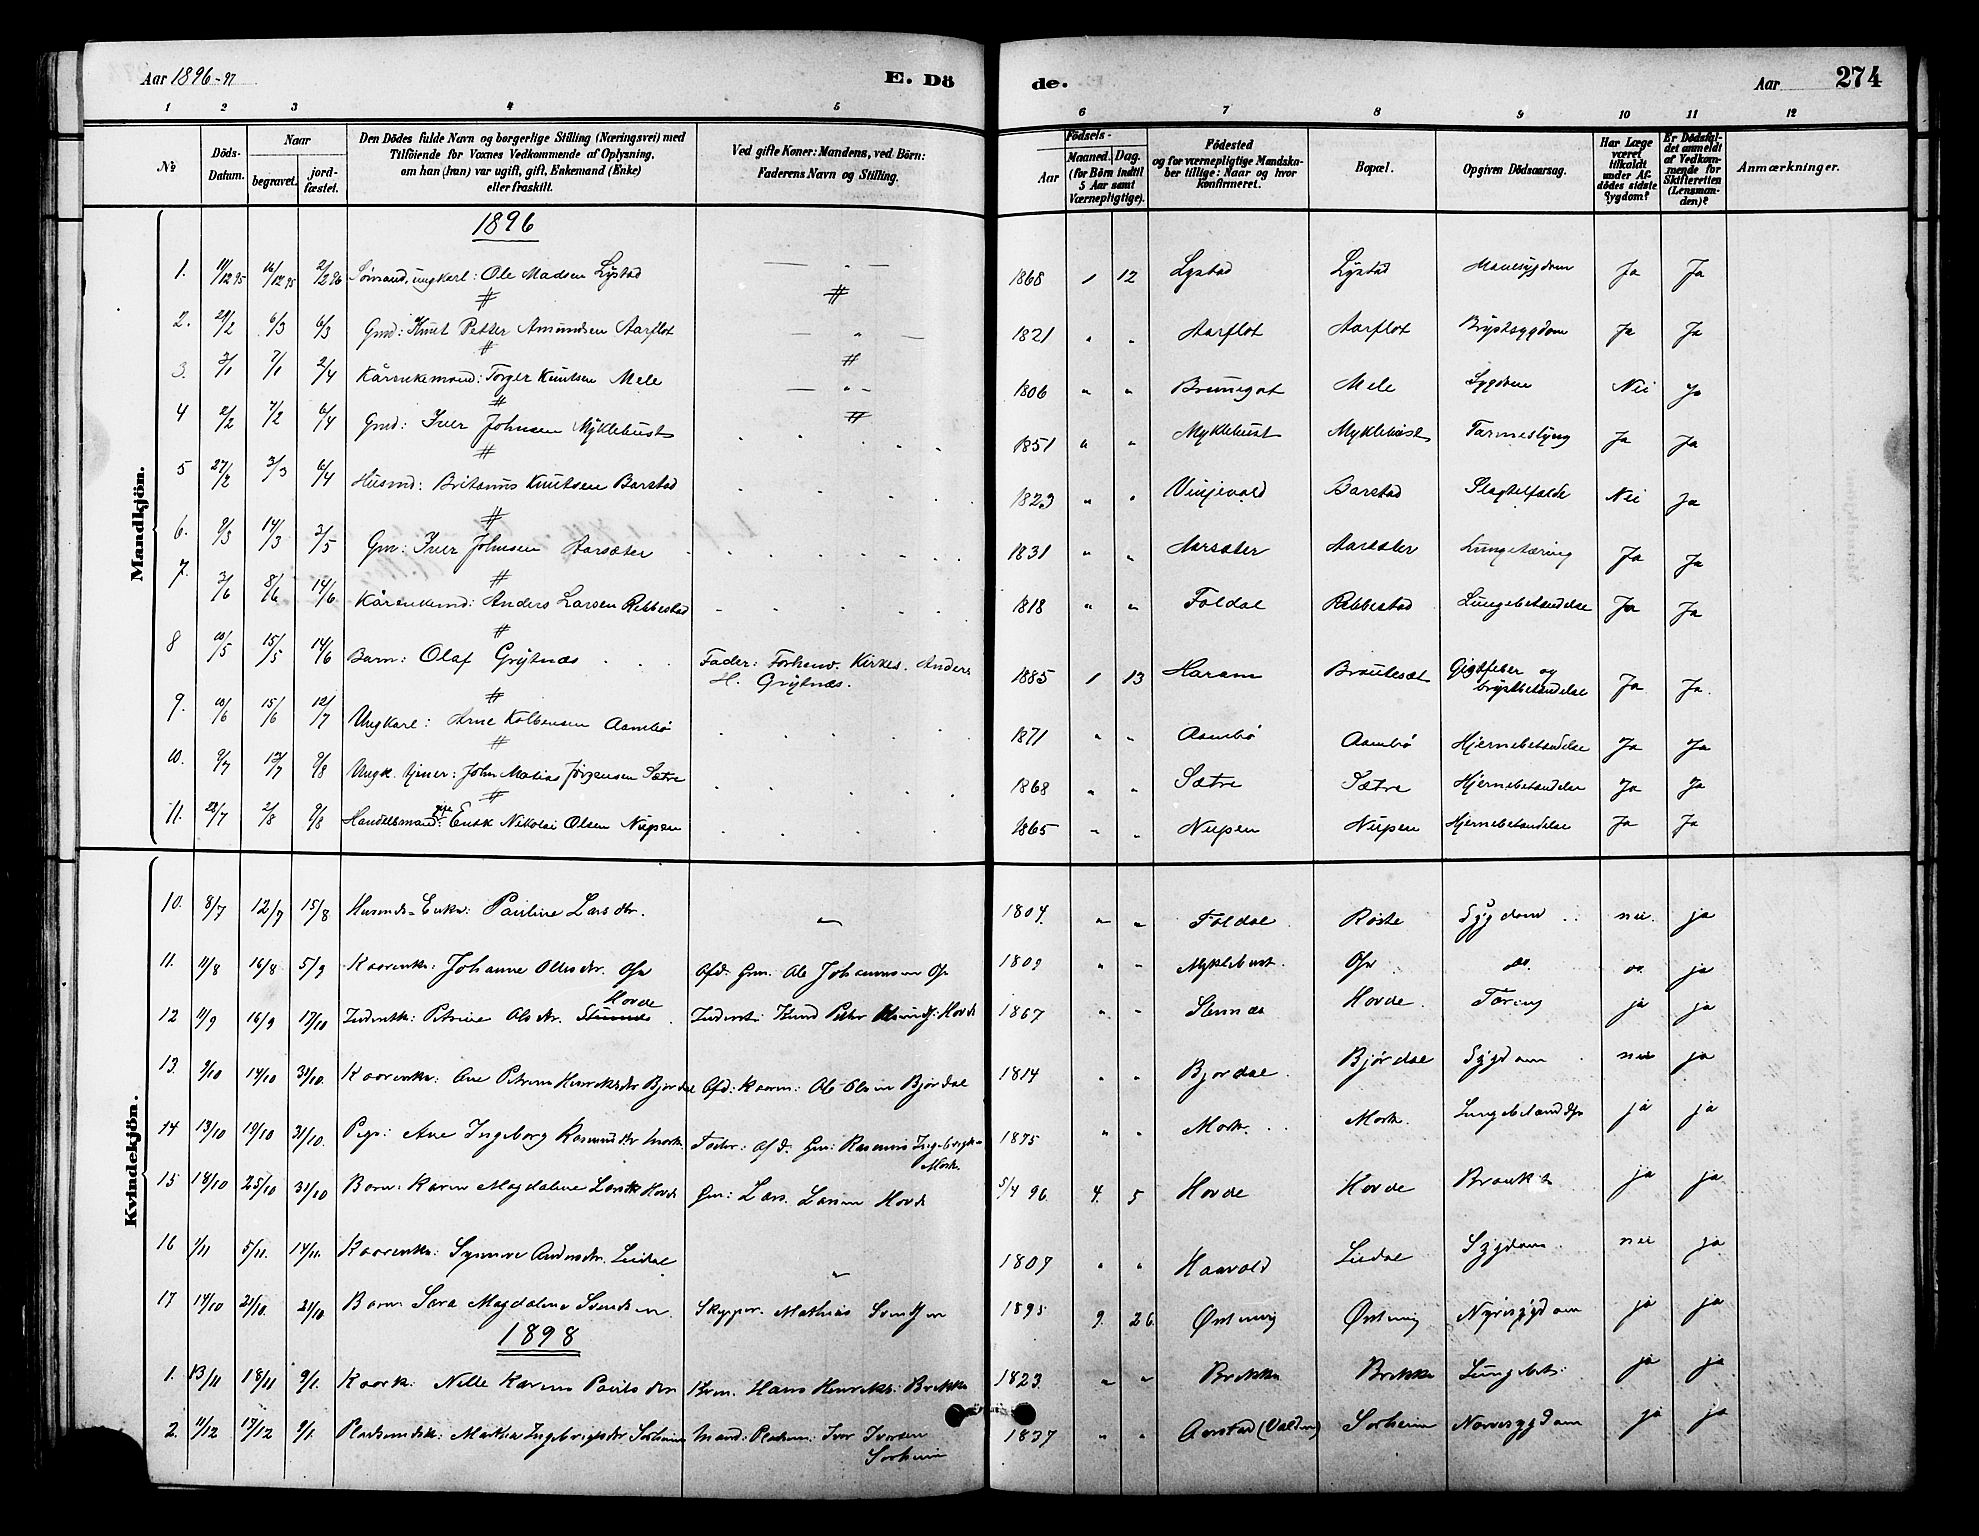 Aar 1896-97 E. Dö de. Aar 274
1 2 3 4 5 6 7 8 9 10 11 12
№
Döds-Datum.
Naar
begravet.
jordfæstet.
Den Dödes fulde Navn og borgerlige Stilling (Næringsvei) med
Tilföiende for Voxnes Vedkommende af Oplysning,
om han (hun) var ugift, gift, Enkemand (Enke)
eller fraskilt.
Ved gifte Koner: Mandens, ved Börn:
Faderens Navn og Stilling.
Födsels-
Aar
Maaned. Dag.
(for Börn indtil
5 Aar samt
Værnepligtige).
Födested
og for værnepligtige Mandska-
ber tillige: Naar og hvor
konfirmeret.
Bopæl.
Opgiven Dödsaarsag.
Har Læge
været
tilkaldt
under Af-
dödes sidste
Sygdom?
Er Dödsfal-
det anmeldt
af Vedkom-
mende for
Skifteretten
(Lensman-
den)?
Anmærkninger.
Mandkjön.
1896
1. 11/12 95 16/12 95 2/2 96 Sømand, ungkarl: Ole Madsen Lystad — " — 1868 1 12 Lystad Lystad Mavesygdom Ja Ja
2. 29/2 6/3 6/3 Gmd: Knut Petter Amundsen Aarflot — " — 1821 " " Aarflot Aarflot Brystsygdom Ja Ja
3. 3/1 7/1 2/4 Kårenkemand: Torger Knutsen Mele — " — 1806 " " Brunegot Mele Sygdom Nei Ja
4 2/2 7/2 6/4 Gmd: Iver Johnsen Myklebust 1851 " " Myklebust Myklebust Tarmeslyng Ja Ja
5 27/2 3/3 6/4 Husmd: Britanus Knutsen Barstad 1823 " " Vinjevold Barstad Slagtilfælde Nei Ja
6. 9/3 14/3 3/5 Gm: Iver Johnsen Aarsæter 1831 " " Aarsæter Aarsæter Lungetæring Ja Ja
7. 3/6 8/6 14/6 Kårenkemd: Anders Larsen Rebbestad 1818 " " Foldal Rebbestad Lungebetændelse Ja Ja
8 10/5 15/5 14/6 Barn: Olaf Grytnæs Fader: Forhenv. Kirkes. Anders
H. Grytnæs. 1885 1 13 Haram Brautesæt Gigtfeber og
brystbetændelse Ja Ja.
9. 10/6 15/6 12/7 Ungkarl: Arne Kolbensen Aambø 1871 " " Aambø Aambø Hjernebetændelse Ja Ja
10. 9/7 13/7 9/8 Ungk. tjener: John Matias Jørgensen Sætre 1868 " " Sætre Sætre Hjernebetændelse Ja Ja
11. 28/7 2/8 9/8 Handelsmand: Nikolai Olsen Nupen 1865 " " Nupen Nupen Hjernebetændelse Ja Ja
Kvindekjön.
10. 8/7 12/7 15/8 Husmds-Enke: Pauline Larsdtr. " 1804. " " Foldal Røste Sygdom nei. ja
11. 11/8 16/8 5/9 Kaarenk: Johanne Olesdtr. Ose Afd. Gm. Ole Johannesen Ose 1809 " " Myklebust Ose do. do ja
Hovde
12 11/9 16/9 17/10 Inderstk: Petrine Olsdtr. Stennes Inderst: Knud Peter Hovde 1867 " " Stennæs Hovde Tæring ja ja
13. 9/10 14/10 31/10. Kaarenke: Ane Petrine Henriksdtr Bjørdal Afd: Kaarm: Ole Olsen Bjørdal 1814 " " Bjørdal Bjørdal Sygdom nei ja
14 13/10 19/10 31/10. Pige: Ane Ingeborg Rasmusdtr Mork Fader: Afd. Gm: Rasmus Ingebrigts.
Mork. 1875 " " Mork. Mork. Lungebetændelse ja ja
15 18/10 25/10 31/10 Barn: Karen Magdaline Larsdtr Hovde Gm: Lars. Larsen Hovde 5/4 96. 4. 5 Hovde Hovde ja ja
16 1/11 5/11. 14/11. Kaarenke: Synneve Andersdtr. Liidal " 1807 " " Haavold Liidal Sygdom nei ja
17 14/10 21/10. 21/10 Barn Sara Magdaline Svendsen Skipper. Mathias Svendsen 1895 9. 26. Østervig Østervig Nyresygdom ja ja
1898
1. 13/11 18/11 9/1. Kaark: Nille Karine Paulsdtr Krm. Hans Henriks: Brekke 1823. " " Brekke Brekke Lungebet: ja ja
2. 11/12 17/12 9/1. Pladsmdsk: Marthe Ingebrigtsdtr Sørheim Mand: Pladsm: Iver Iversen
Sørheim 1837 " " Aarstad (Valden) Sørheim Nervesygdom ja ja